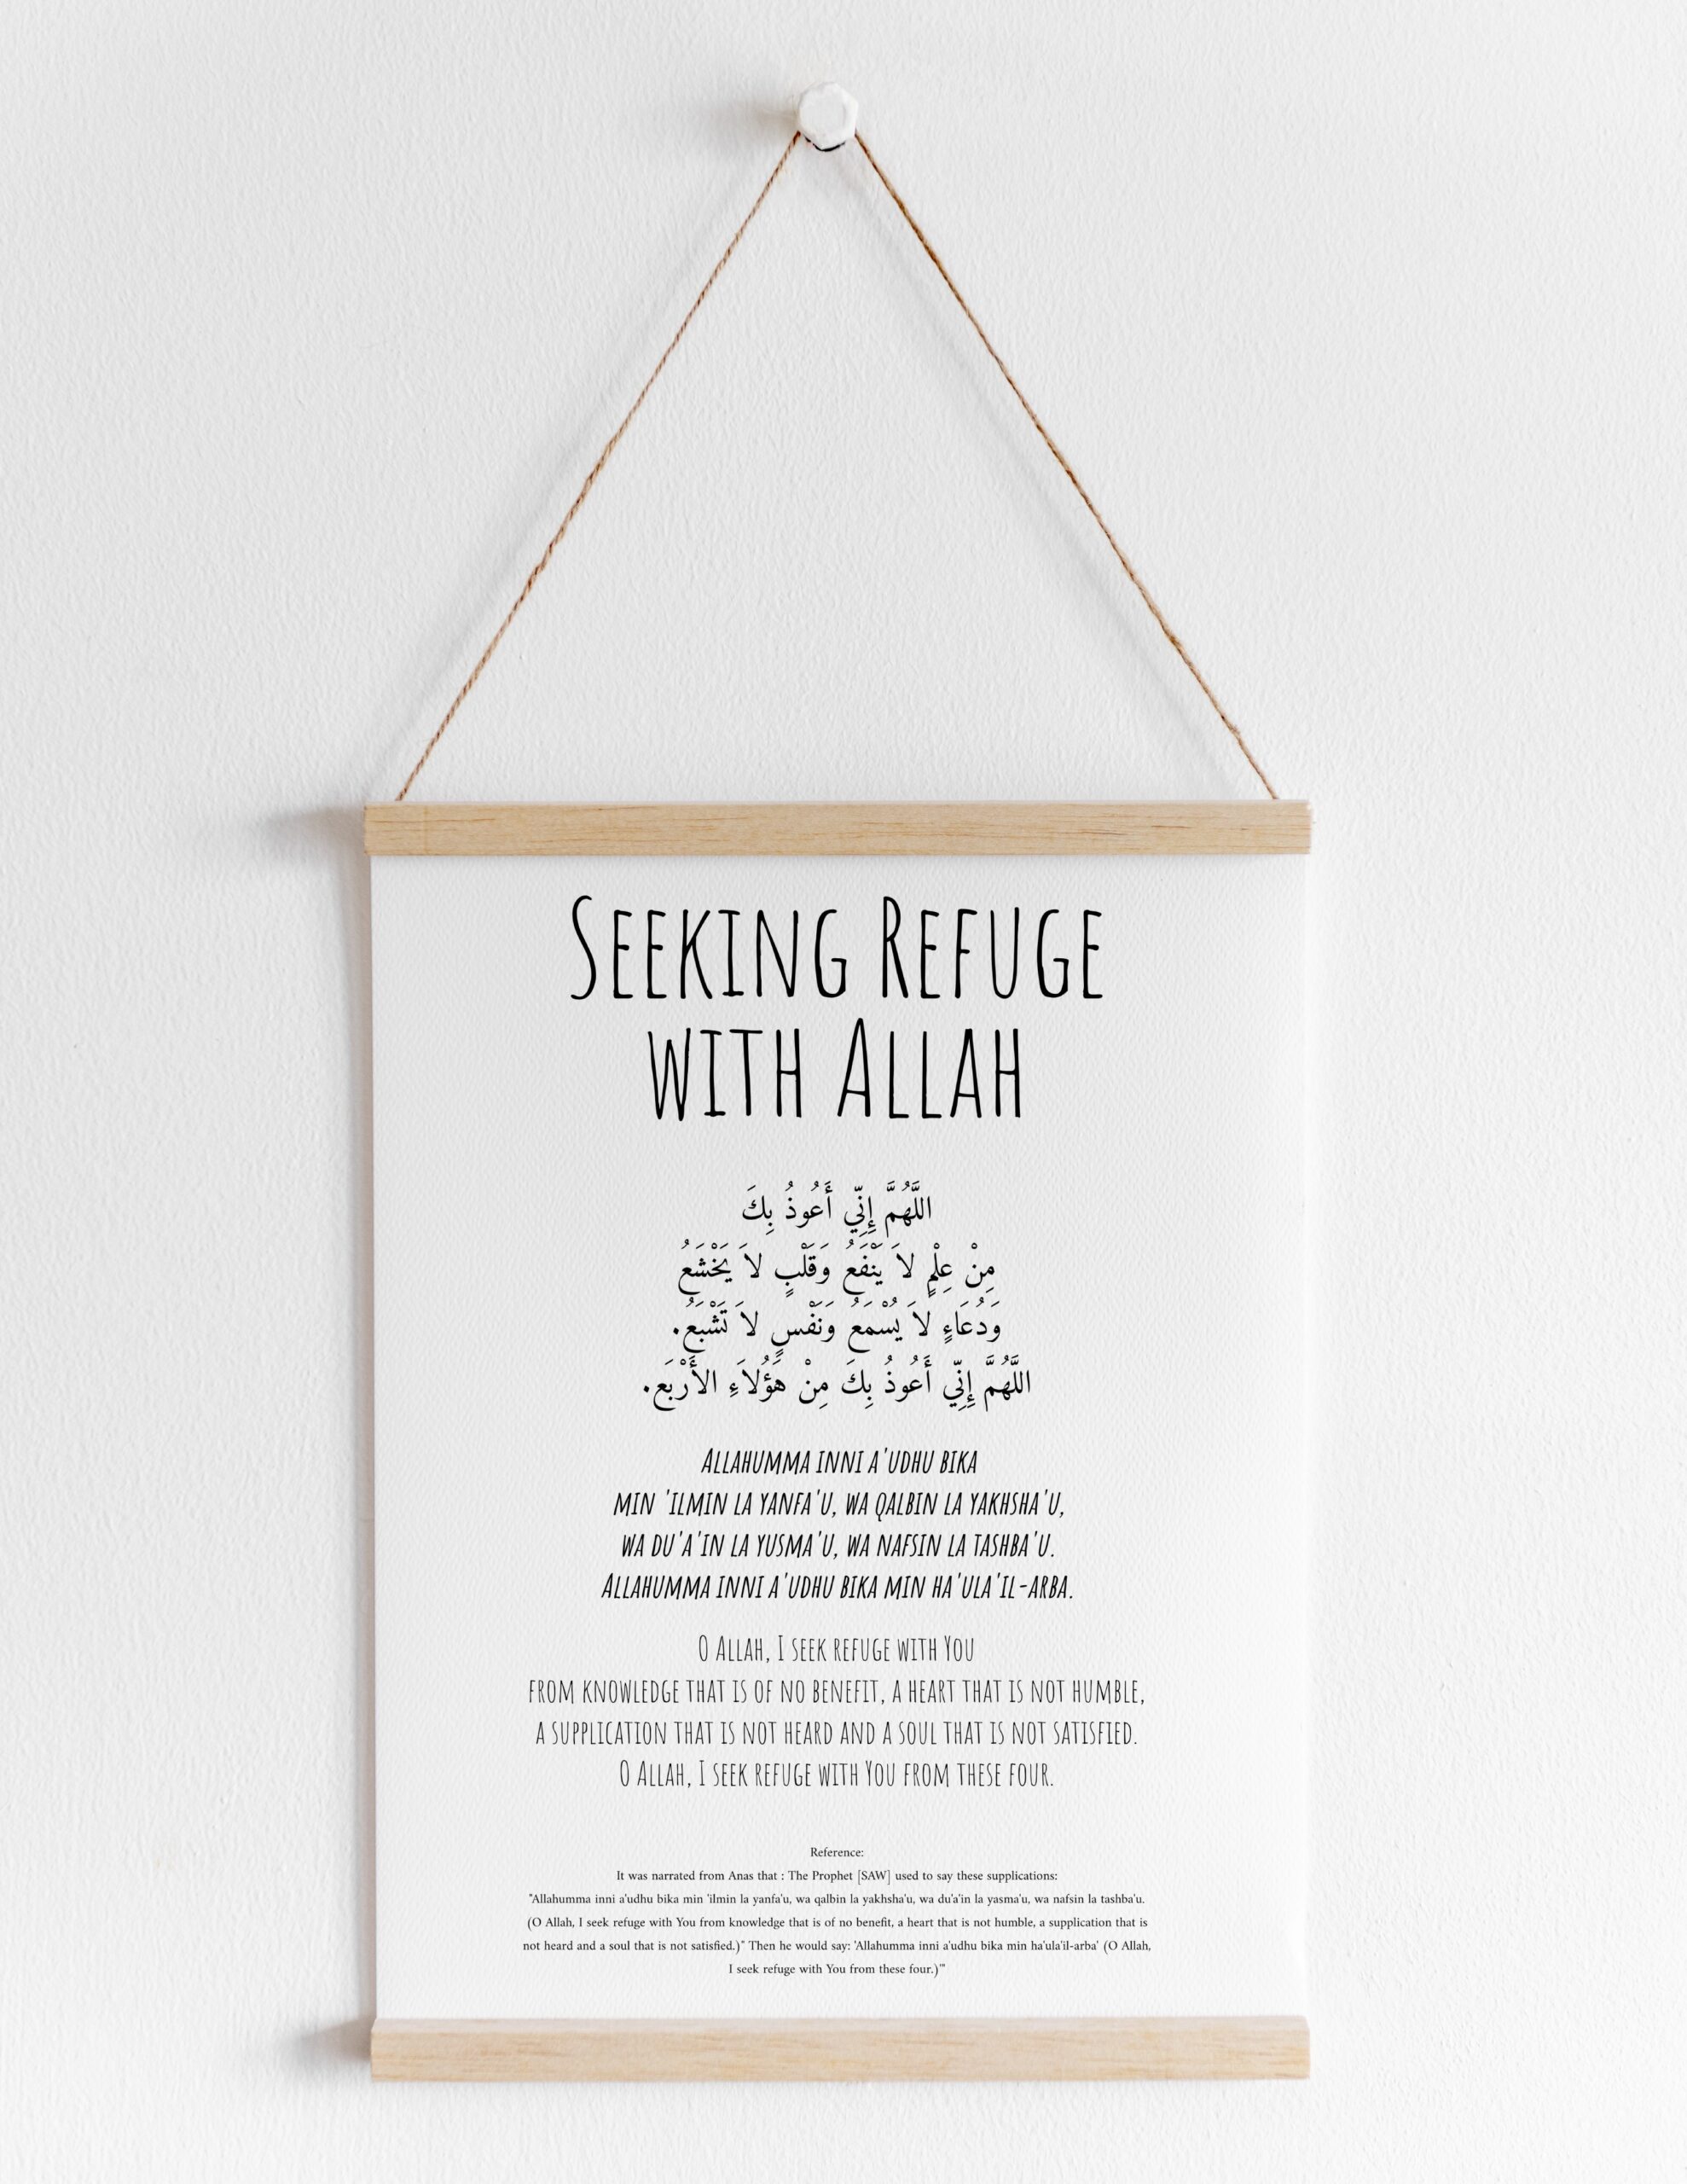 Seeking Refuge
with Allah
اللَّهُمَّ إِنِّي أَعُوذُ بِكَ
مِنْ عِلْمٍ لاَ يَنْفَعُ وَقَلْبٍ لاَ يَخْشَعُ
وَدُعَاءٍ لاَ يُسْمَعُ وَنَفْسٍ لاَ تَشْبَعُ.
اللَّهُمَّ إِنِّي أَعُوذُ بِكَ مِنْ هَؤُلاَءِ الأَرْبَعِ.
Allahumma inni a'udhu bika
min 'ilmin la yanfa'u, wa qalbin la yakhsha'u,
wa du'a'in la yusma'u, wa nafsin la tashba'u.
Allahumma inni a'udhu bika min ha'ula'il-arba.
O Allah, I seek refuge with You
from knowledge that is of no benefit, a heart that is not humble,
a supplication that is not heard and a soul that is not satisfied.
O Allah, I seek refuge with You from these four.
Reference:
It was narrated from Anas that : The Prophet [SAW] used to say these supplications:
"Allahumma inni a'udhu bika min 'ilmin la yanfa'u, wa qalbin la yakhsha'u, wa du'a'in la yasma'u, wa nafsin la tashba'u.
(O Allah, I seek refuge with You from knowledge that is of no benefit, a heart that is not humble, a supplication that is
not heard and a soul that is not satisfied.)" Then he would say: 'Allahumma inni a'udhu bika min ha'ula'il-arba' (O Allah,
I seek refuge with You from these four.)'"